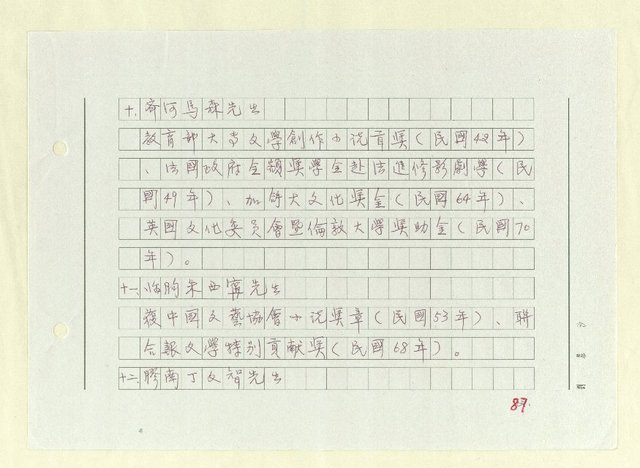 十、齊河馬森先生
教育部大專文學創作小說首獎（民國42年）
、法國政府全額獎學金赴法進修影劇學（民
國49年）、加拿大文化獎金（民國64年）、
英國文化委員會暨倫敦大學獎助金（民國70
年）。
十一、臨朐朱西寧先生
獲中國文藝協會小說獎章（民國53年）、聯
合報文學特別貢獻獎（民國68年）。
十二、膠南丁文智先生
87.